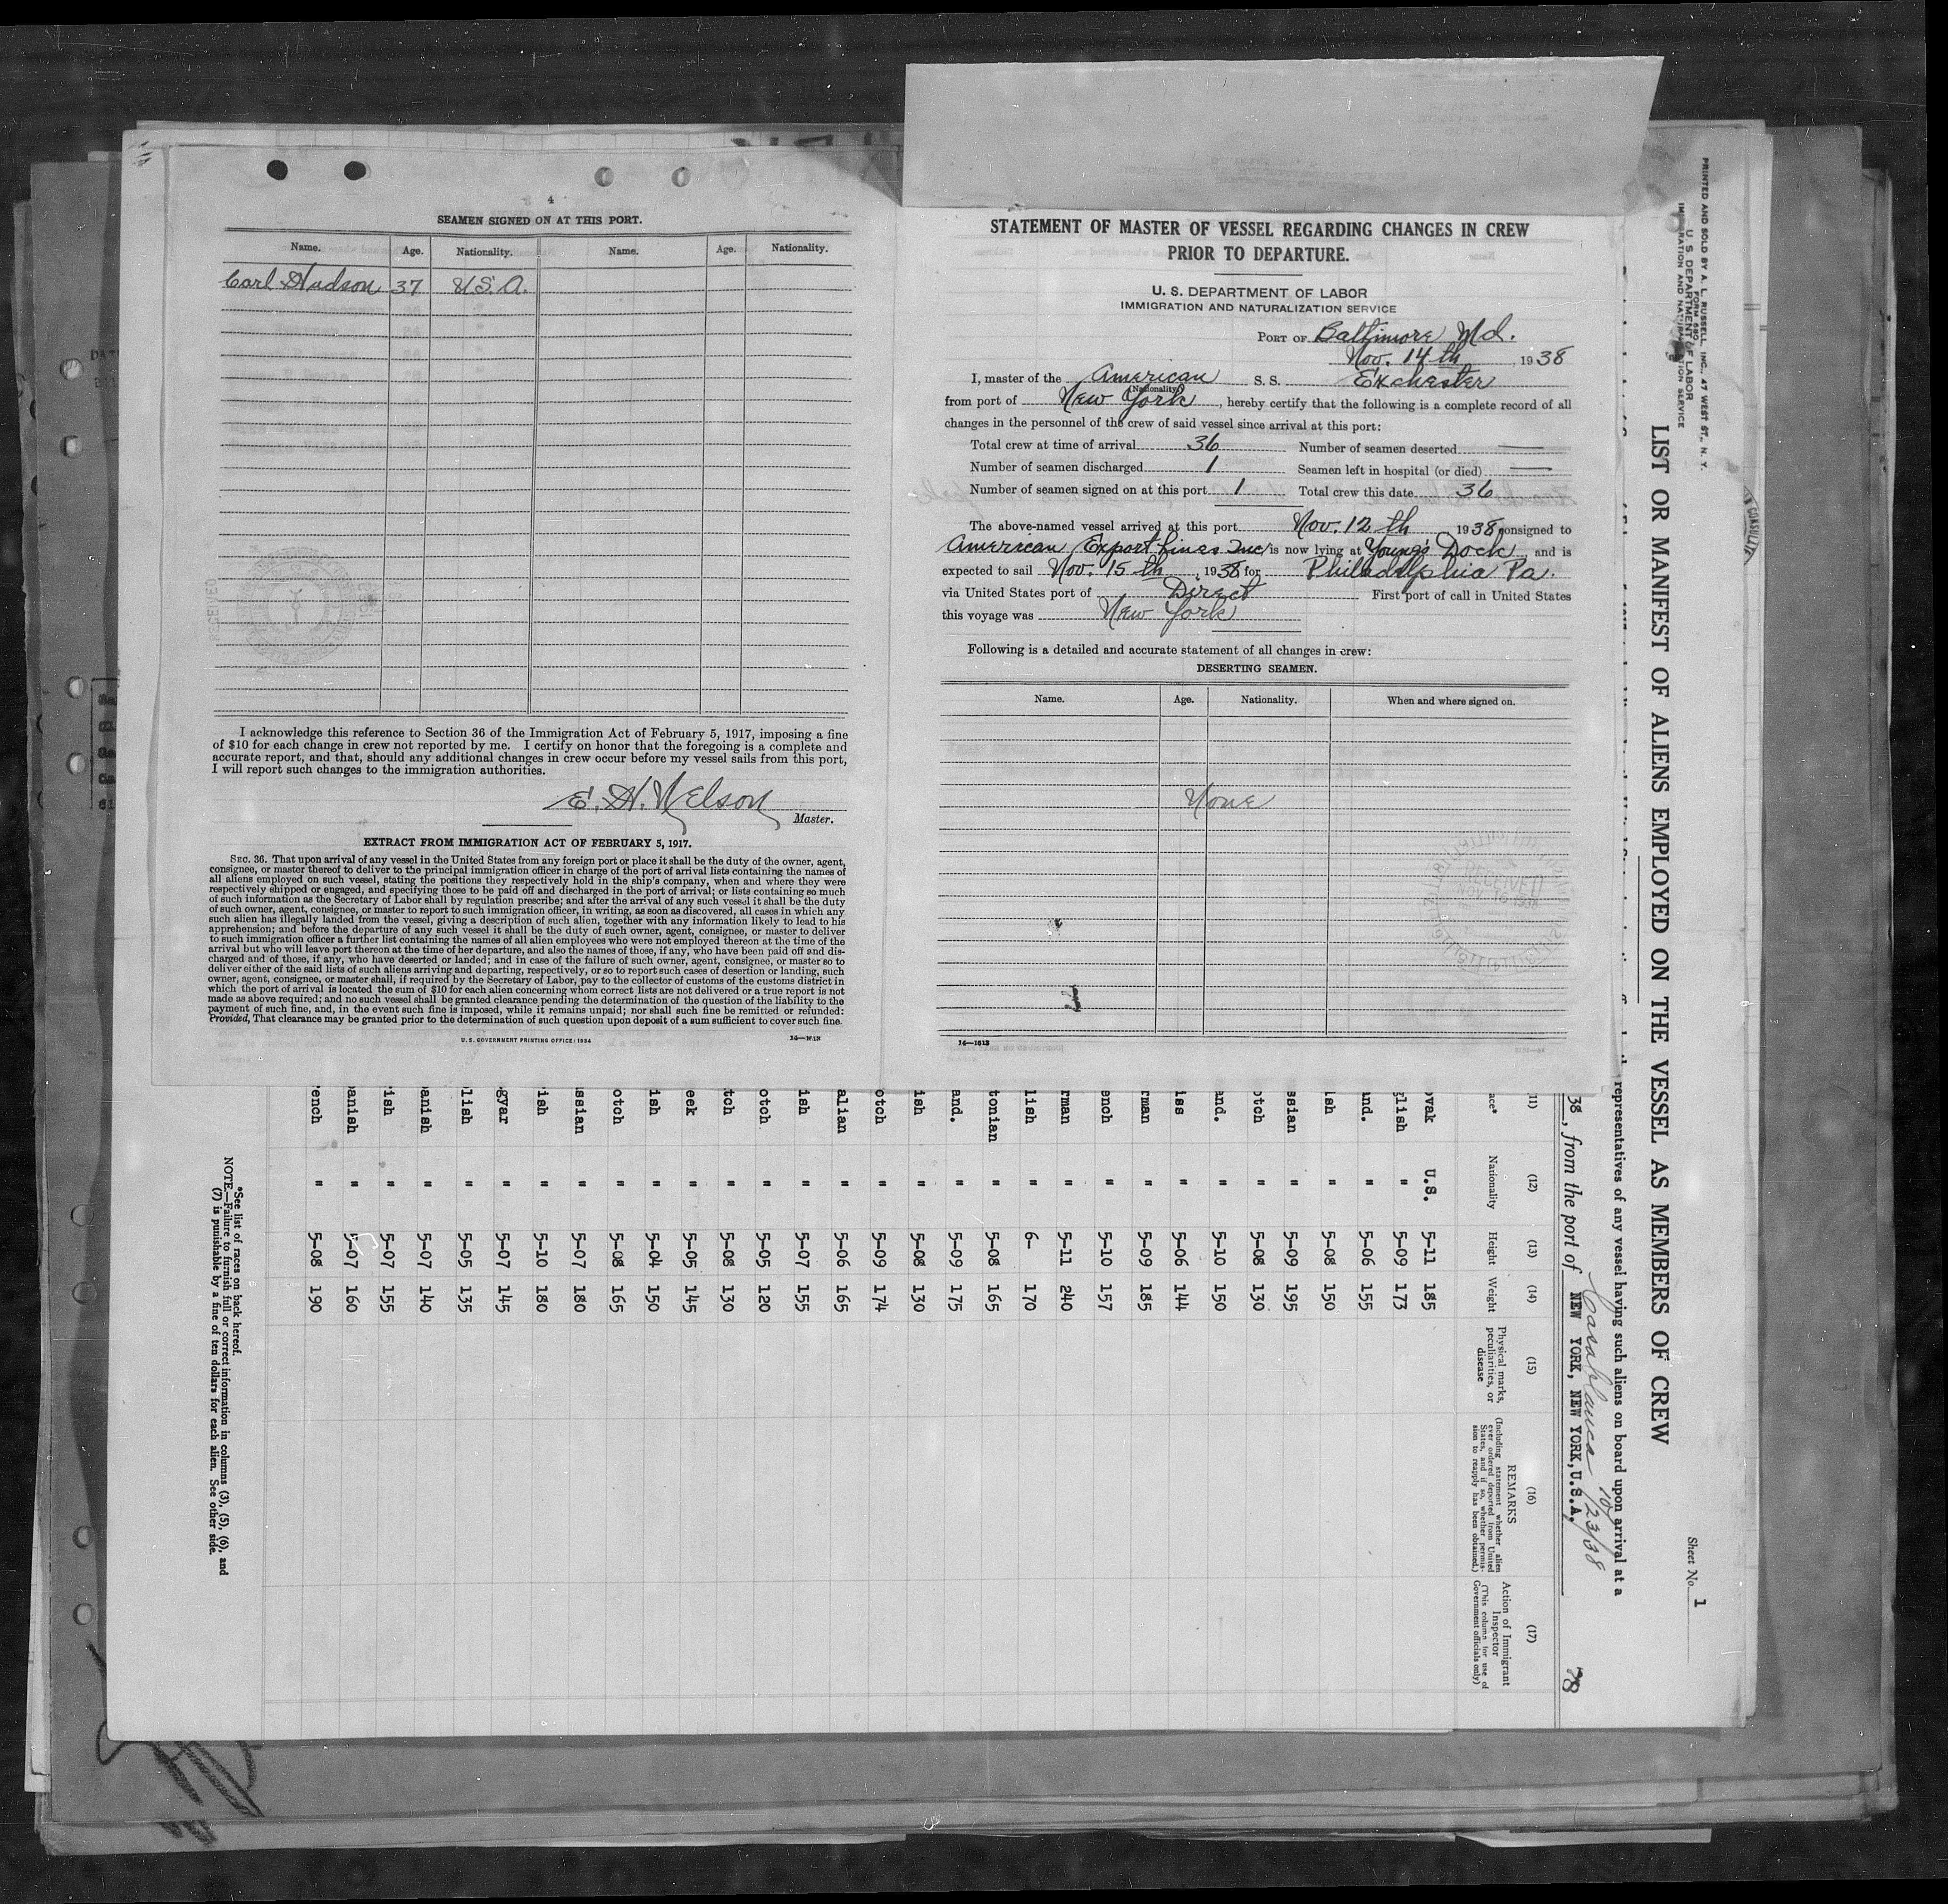 4
SEAMEN SIGNED ON AT THIS PORT.
Name. Age. Nationality. Name. Age. Nationality.
Carl Hudson 37 U.S.A.
I acknowledge this reference to Section 36 of the Immigration Act of February 5, 1917, imposing a fine
of $10 for each change in crew not reported by me. I certify on honor that the foregoing is a complete and
accurate report, and that, should any additional changes in crew occur before my vessel sails from this port,
I will report such changes to the immigration authorities.
E. H. Nelson
Master.
EXTRACT FROM IMMIGRATION ACT OF FEBRUARY 5, 1917.
SEC. 36. That upon arrival of any vessel in the United States from any foreign port or place it shall be the duty of the owner, agent,
consignee, or master thereof to deliver to the principal immigration officer in charge of the port of arrival lists containing the names of
all aliens employed on such vessel, stating the positions they respectively hold in the ship's company, when and where they were
respectively shipped or engaged, and specifying those to be paid off and discharged in the port of arrival; or lists containing so much
of such information as the Secretary of Labor shall by regulation prescribe; and after the arrival of any such vessel it shall be the duty
of such owner, agent, consignee, or master to report to such immigration officer, in writing, as soon as discovered, all cases in which any
such alien has illegally landed from the vessel, giving a description of such alien, together with any information likely to lead to his
apprehension; and before the departure of any such vessel it shall be the duty of such owner, agent, consignee, or master to deliver
to such immigration officer a further list containing the names of all alien employees who were not employed thereon at the time of the
arrival but who will leave port thereon at the time of her departure, and also the names of those, if any, who have been paid off and dis-
charged and of those, if any, who have deserted or landed; and in case of the failure of such owner, agent, consignee, or master so to
deliver either of the said lists of such aliens arriving and departing, respectively, or so to report such cases of desertion or landing, such
owner, agent, consignee, or master shall, if required by the Secretary of Labor, pay to the collector of customs of the customs district in
which the port of arrival is located the sum of $10 for each alien concerning whom correct lists are not delivered or a true report is not
made as above required; and no such vessel shall be granted clearance pending the determination of the question of the liability to the
payment of such fine, and, in the event such fine is imposed, while it remains unpaid; nor shall such fine be remitted or refunded:
Provided, That clearance may be granted prior to the determination of such question upon deposit of a sum sufficient to cover such fine.
U. S. GOVERNMENT PRINTING OFFICE: 1934
STATEMENT OF MASTER OF VESSEL REGARDING CHANGES IN CREW
PRIOR TO DEPARTURE.
U. S. DEPARTMENT OF LABOR
IMMIGRATION AND NATURALIZATION SERVICE
PORT OF Baltimore Md.
Nov. 14 th, 1938
I, master of the American S. S. Exchester
(Nationality)
from port of New York, hereby certify that the following is a complete record of all
changes in the personnel of the crew of said vessel since arrival at this port:
Total crew at time of arrival 36 Number of seamen deserted —
Number of seamen discharged 1 Seamen left in hospital (or died) —
Number of seamen signed on at this port 1 Total crew this date 36
The above-named vessel arrived at this port Nov. 12 th, 1938, consigned to
American Export Lines Inc, is now lying at Young's Dock, and is
expected to sail Nov. 15 th, 1938 for Philadelphia Pa.
via United States port of Direct First port of call in United States
this voyage was New York
Following is a detailed and accurate statement of all changes in crew:
DESERTING SEAMEN.
Name. Age. Nationality. When and where signed on.
None
RECEIVED
NOV 16 1938
14—1613
PRINTED AND SOLD BY A. L. RUSSELL, INC., 47 WEST ST., N. Y.
FORM 680
U. S. DEPARTMENT OF LABOR
IMMIGRATION AND NATURALIZATION SERVICE
Sheet No. 1
LIST OR MANIFEST OF ALIENS EMPLOYED ON THE VESSEL AS MEMBERS OF CREW
representatives of any vessel having such aliens on board upon arrival at a
Casablanca 10/23/38
38, from the port of NEW YORK, NEW YORK, U.S.A.
78
(11) (12) (13) (14) (15) (16) (17)
ace* Nationality Height Weight Physical marks, peculiarities, or disease
REMARKS
(Including statement whether alien ever ordered deported from United States, and if so, whether permission to reapply has been obtained.)
Action of Immigrant Inspector
(This column for use of Government officials only)
ovak U.S. 5-11 185
glish " 5-09 173
and. " 5-06 155
ish " 5-08 150
ssian " 5-09 195
otch " 5-08 130
and. " 5-10 150
iss " 5-06 144
rman " 5-09 185
ench " 5-10 157
rman " 5-11 240
lish " 6- 170
tonian " 5-08 165
and. " 5-09 175
ish " 5-08 130
otch " 5-09 174
alian " 5-06 165
ish " 5-07 155
otch " 5-05 120
tch " 5-08 130
eek " 5-05 145
ish " 5-04 150
otch " 5-08 165
ssian " 5-07 180
ish " 5-10 180
gyar " 5-07 145
lish " 5-05 135
anish " 5-07 140
ish " 5-07 155
anish " 5-07 160
ench " 5-08 190
*See list of races on back hereof.
NOTE.—Failure to furnish full or correct information in columns (3), (5), (6), and
(7) is punishable by a fine of ten dollars for each alien. See other side.